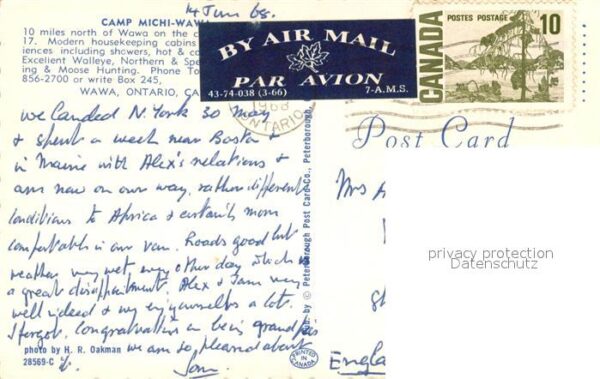 14 Jun 68.
CAMP MICHI-WAWA
10 miles north of Wawa on the
17. Modern housekeeping cabins
iences including showers, hot &
Excellent Walleye, Northern & Spe
ing & Moose Hunting. Phone
856-2700 or write Box 245,
WAWA, ONTARIO, CA
BY AIR MAIL
PAR AVION
43-74-038 (3-66) 7-A.M.S.
CANADA
POSTES POSTAGE
10
1968
ONTARIO
Post Card
we landed N. York 30 May
& spent a week near Boston &
in Maine with Alex's relations &
are now on our way, rather different
conditions to Africa & certainly more
comfortable in our van. Roads good but
weather very wet every other day which is
a great disappointment. Alex & I are very
well indeed & enjoy ourselves a lot.
I forgot, Congratulations on being grandp
we are so pleased about
it.
photo by H. R. Oakman
28569-C
Pub. by © Peterborough Post Card Co., Peterborough,
PRINTED IN CANADA
Mrs
Engla
privacy protection
Datenschutz